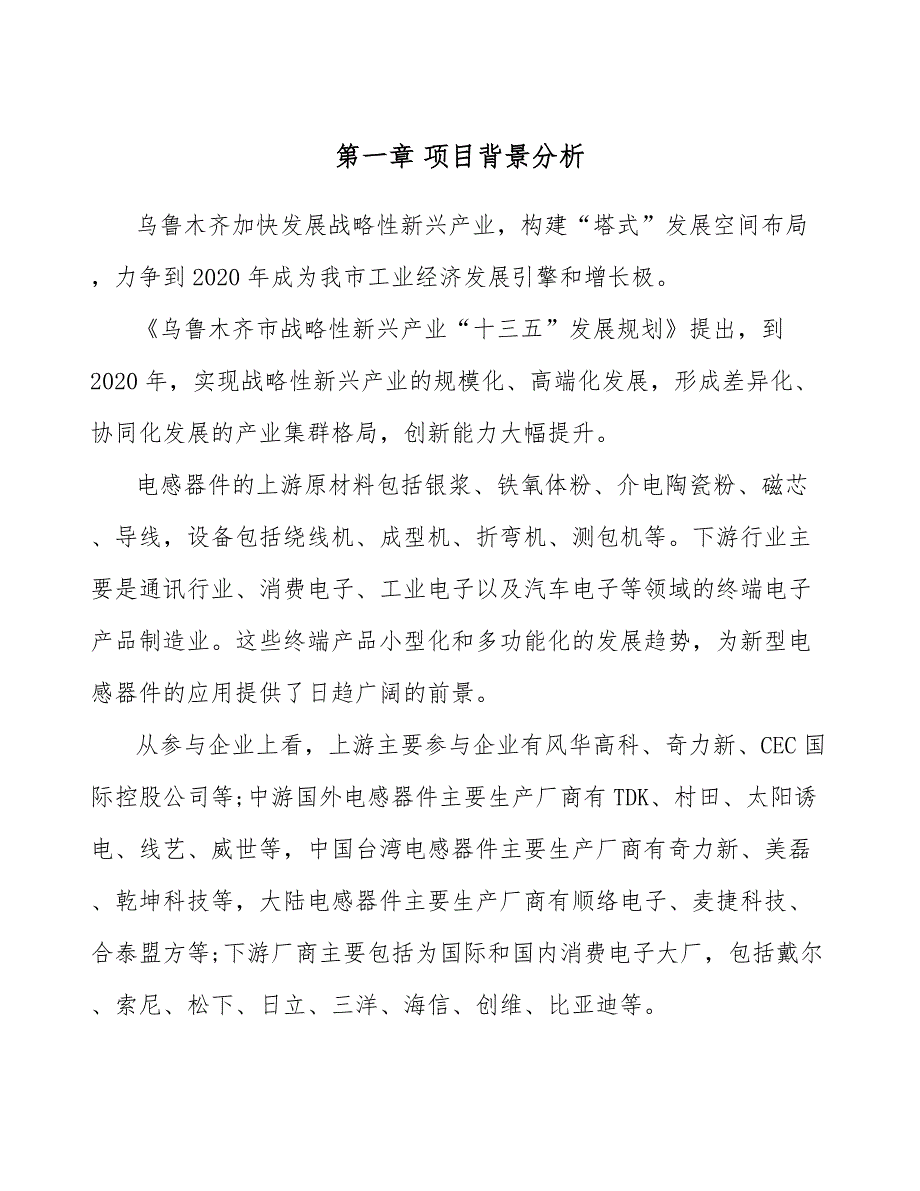 第一章 项目背景分析
乌鲁木齐加快发展战略性新兴产业，构建“塔式”发展空间布局
，力争到 2020 年成为我市工业经济发展引擎和增长极。
《乌鲁木齐市战略性新兴产业“十三五”发展规划》提出，到
2020 年，实现战略性新兴产业的规模化、高端化发展，形成差异化、
协同化发展的产业集群格局，创新能力大幅提升。
电感器件的上游原材料包括银浆、铁氧体粉、介电陶瓷粉、磁芯
、导线，设备包括绕线机、成型机、折弯机、测包机等。下游行业主
要是通讯行业、消费电子、工业电子以及汽车电子等领域的终端电子
产品制造业。这些终端产品小型化和多功能化的发展趋势，为新型电
感器件的应用提供了日趋广阔的前景。
从参与企业上看，上游主要参与企业有风华高科、奇力新、CEC 国
际控股公司等;中游国外电感器件主要生产厂商有 TDK、村田、太阳诱
电、线艺、威世等，中国台湾电感器件主要生产厂商有奇力新、美磊
、乾坤科技等，大陆电感器件主要生产厂商有顺络电子、麦捷科技、
合泰盟方等;下游厂商主要包括为国际和国内消费电子大厂，包括戴尔
、索尼、松下、日立、三洋、海信、创维、比亚迪等。